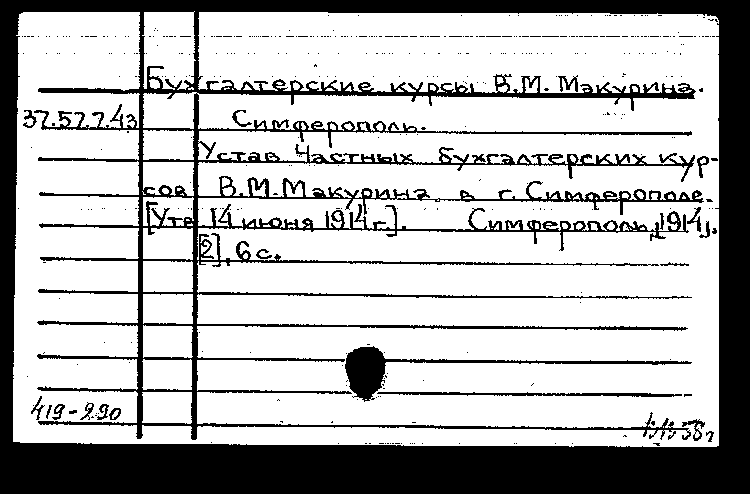 Бухгалтерские курсы В.М. Макурина.
37.57.7.43 Симферополь.
Устав частных бухгалтерских кур-
сов В.М. Макурина в г. Симферополе.
[Утв 14 июня 1914 г.]. Симферополь, [1914].
[2], 6 с.
419-290